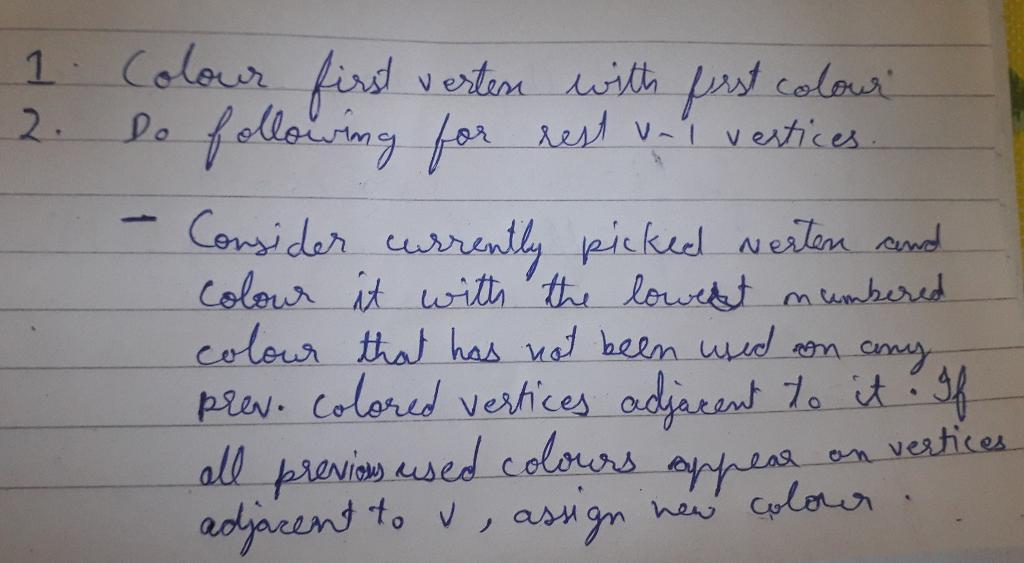 1. Colour first vertex with first colour
2. Do following for rest V-1 vertices.
- Consider currently picked vertex and
colour it with the lowest numbered
colour that has not been used on any
prev. colored vertices adjacent to it. If
all previous used colours appear on vertices
adjacent to v, assign new colour.